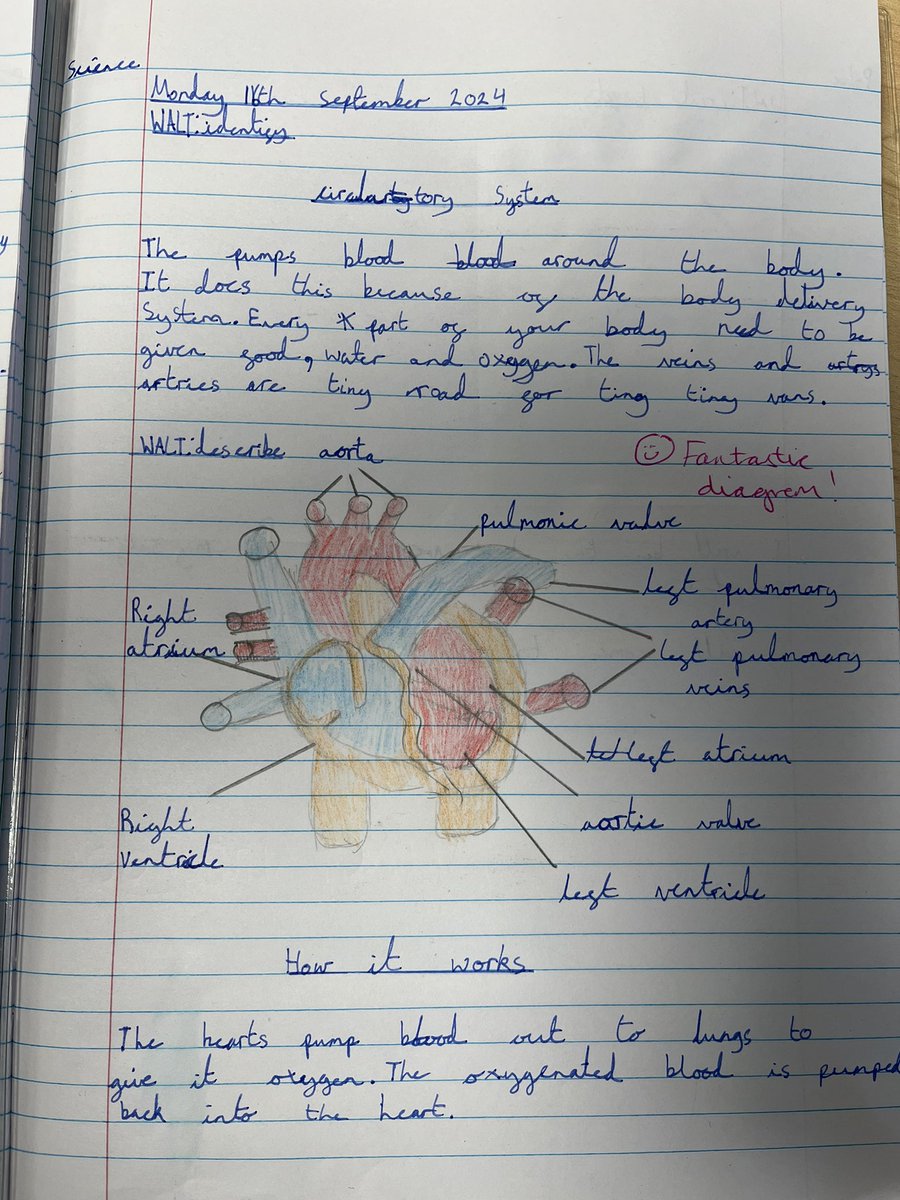 Science
Monday 16th September 2024
WALT:identify
circulartory System
The pumps blood blood around the body.
It does this because of the body delivery
System. Every * part of your body need to be
given food, water and oxygen. The veins and artrys
artries are tiny road for ting tiny vans.
WALT:describe aorta
Fantastic
diagram!
pulmonic valve
left pulmonary
artery
Right
atrium
left pulmonary
veins
left atrium
Right
ventricle
aortic valve
left ventricle
How it works
The hearts pump blood out to lungs to
give it oxygen. The oxygenated blood is pumped
back into the heart.